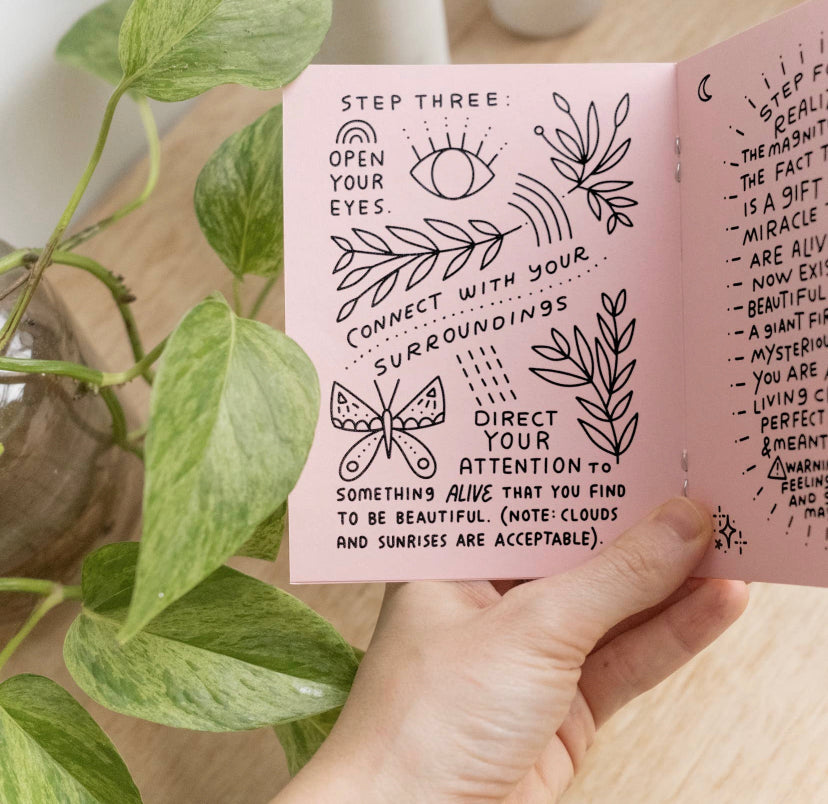 STEP THREE:
OPEN
YOUR
EYES.
CONNECT WITH YOUR
SURROUNDINGS
DIRECT
YOUR
ATTENTION TO
SOMETHING ALIVE THAT YOU FIND
TO BE BEAUTIFUL. (NOTE: CLOUDS
AND SUNRISES ARE ACCEPTABLE).
STEP
THE MAGNIT
THE FACT
IS A GIFT
MIRACLE
ARE ALIV
NOW EXIS
BEAUTIFUL
A GIANT FIR
MYSTERIOU
YOU ARE
LIVING
PERFECT
& MEANT
WARNIN
FEELING
AND